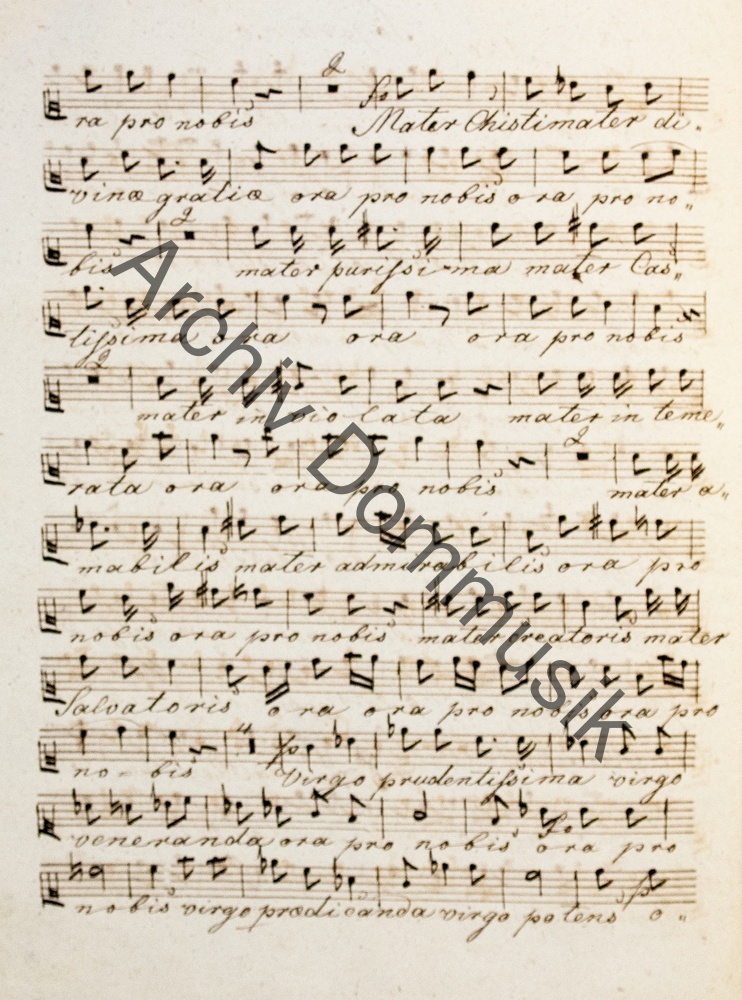 2
ra pro nobis Mater Chisti mater di„
vinæ gratiæ ora pro nobis ora pro no„
2
bis mater purissima mater Cas„
tissima ora ora ora pro nobis
2
mater in vio lata mater in teme„
rata ora ora pro nobis mater a„
2
mabilis mater admirabilis ora pro
nobis ora pro nobis mater creatoris mater
Salvatoris ora ora pro nobis ora pro
4
no - bis Virgo prudentissima virgo
veneranda ora pro nobis ora pro
fo
nobis virgo prædicanda virgo potens o„
Archiv Dommusik